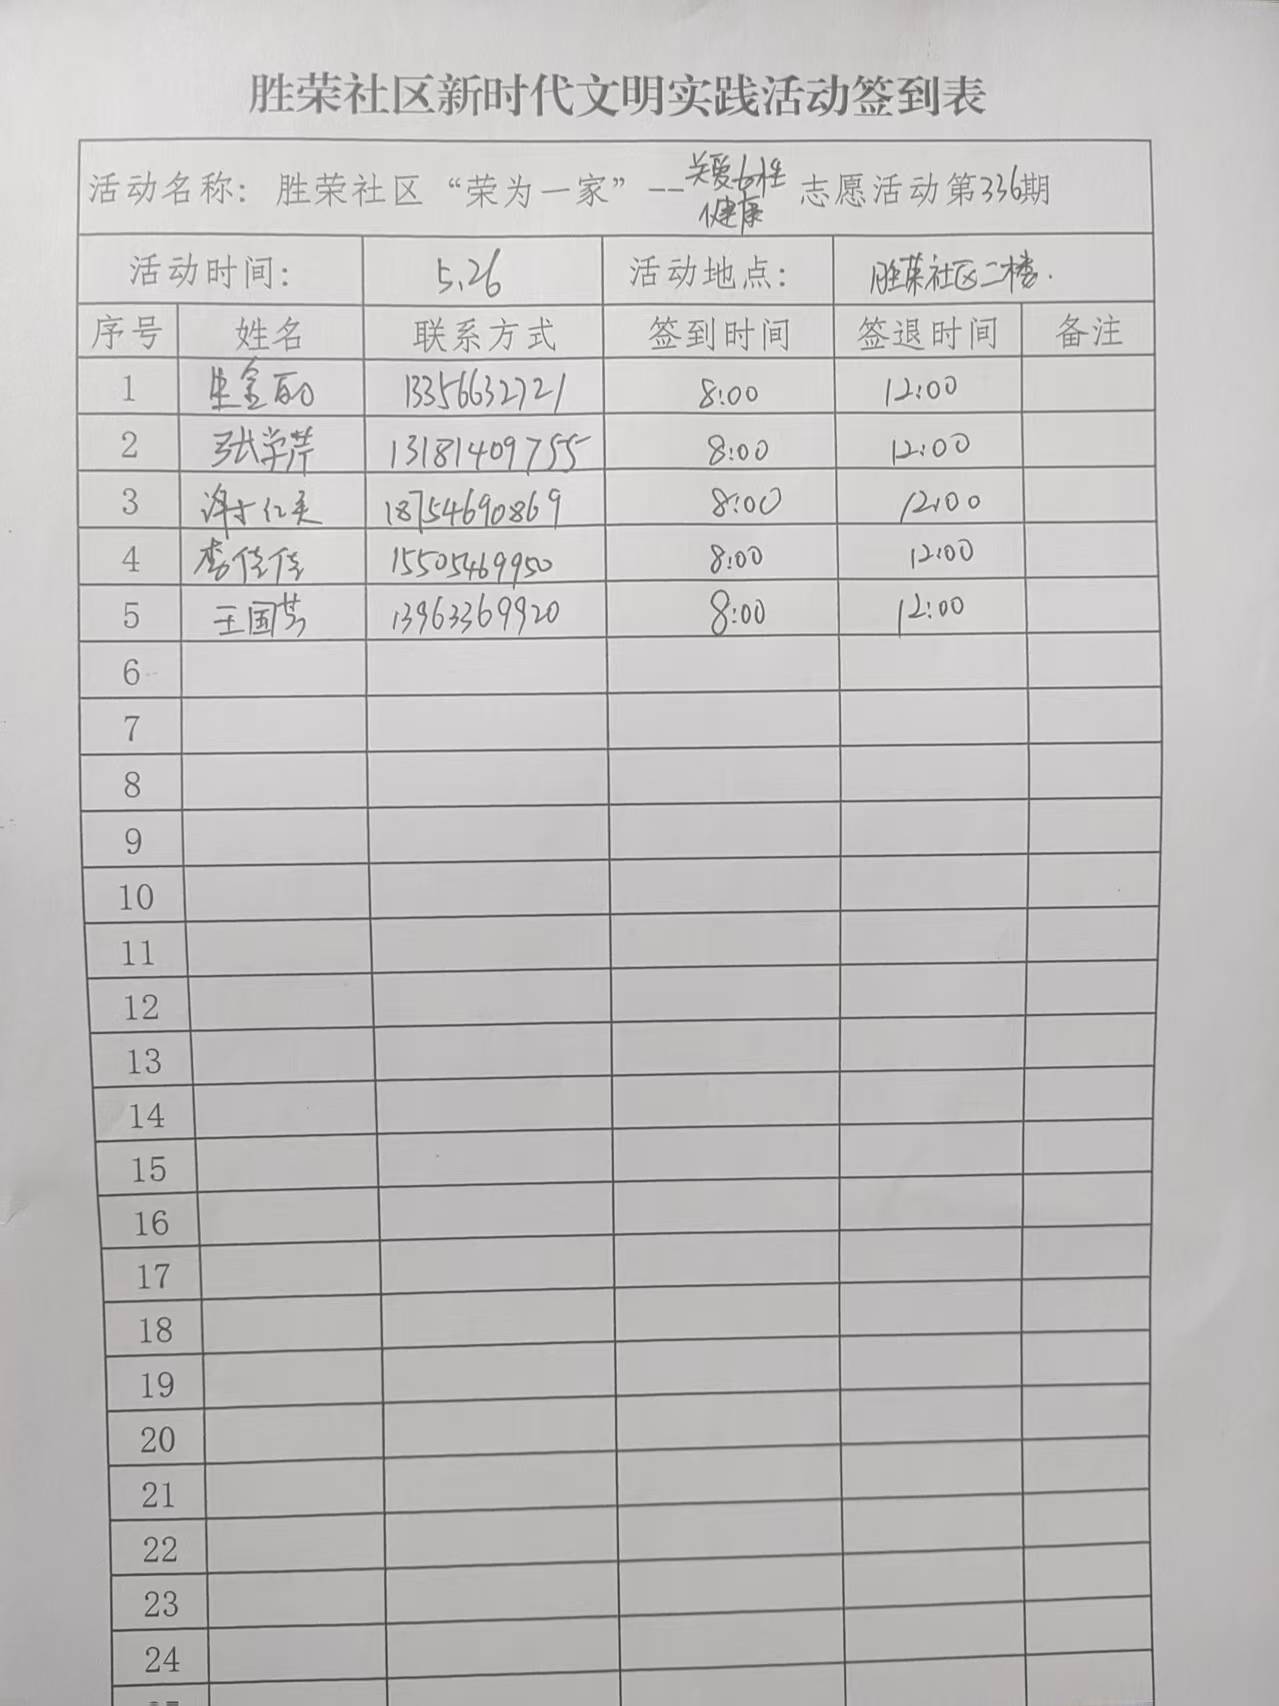 胜荣社区新时代文明实践活动签到表
活动名称：胜荣社区“荣为一家”--关爱女性健康 志愿活动第336期
活动时间： 5.26 活动地点： 胜荣社区二楼.
序号 姓名 联系方式 签到时间 签退时间 备注
1 13356632721 8:00 12:00
2 张学芹 13181409755 8:00 12:00
3 18754690869 8:00 12:00
4 李佳佳 15505469950 8:00 12:00
5 王国芳 13963369920 8:00 12:00
6
7
8
9
10
11
12
13
14
15
16
17
18
19
20
21
22
23
24